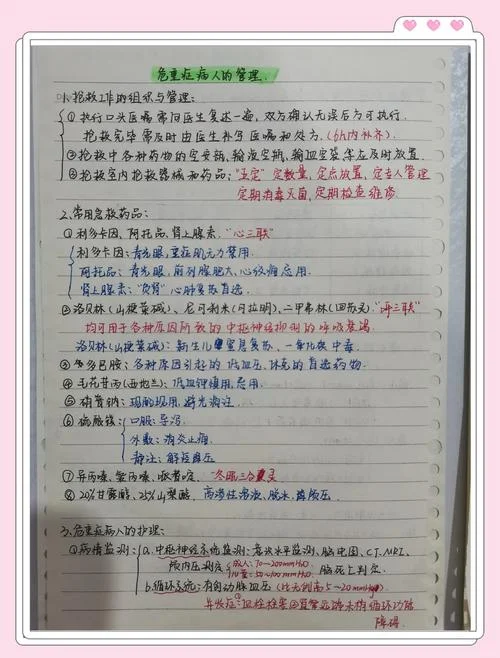 危重症病人的管理
1. 抢救工作的组织与管理:
①执行口头医嘱需向医生复述一遍,双方确认无误后方可执行.
抢救完毕需及时由医生补写医嘱和处方.(6h内补齐)
②抢救中各种药物的空安瓿,输液空瓶,输血空袋等应及时放置.
③抢救室内抢救器械和药品:"五定"定数量,定点放置,定专人管理
定期消毒灭菌,定期检查维修
2.常用急救药品:
①利多卡因,阿托品,肾上腺素."心三联"
利多卡因:青光眼,重症肌无力禁用.
阿托品:青光眼,前列腺肥大,心绞痛忌用.
肾上腺素:心肺复苏首选
②洛贝林(山梗菜碱)、尼可刹米(可拉明),二甲弗林(回苏灵)"呼三联"
均可用于各种原因所致的中枢神经抑制的呼吸衰竭
洛贝林(山梗菜碱):新生儿窒息复苏、一氧化碳中毒
③多巴胺:各种原因引起的低血压,休克的首选药物.
④毛花苷丙(西地兰):低血钾慎用,忌用.
⑤硝普钠:现配现用,避光滴注
⑥硫酸镁:口服:导泻
外敷:消炎止痛
静注:解痉降压
⑦异丙嗪,氯丙嗪,哌替啶."冬眠三分灵
⑧20%甘露醇,25%山梨醇,高渗性溶液,脱水,降颅压.
3.危重症病人的护理:
①病情监测:a.中枢神经系统监测:意识水平监测,脑电图,CT.MRI.
颅内压测定 成人:70~200mmH₂O 脑死亡判定.
儿童:50~100mmH₂O
b.循环系统:有创动脉血压(比无创高5~20mmHg)
并发症:①血栓栓塞②血管远端末梢循环功能
障碍